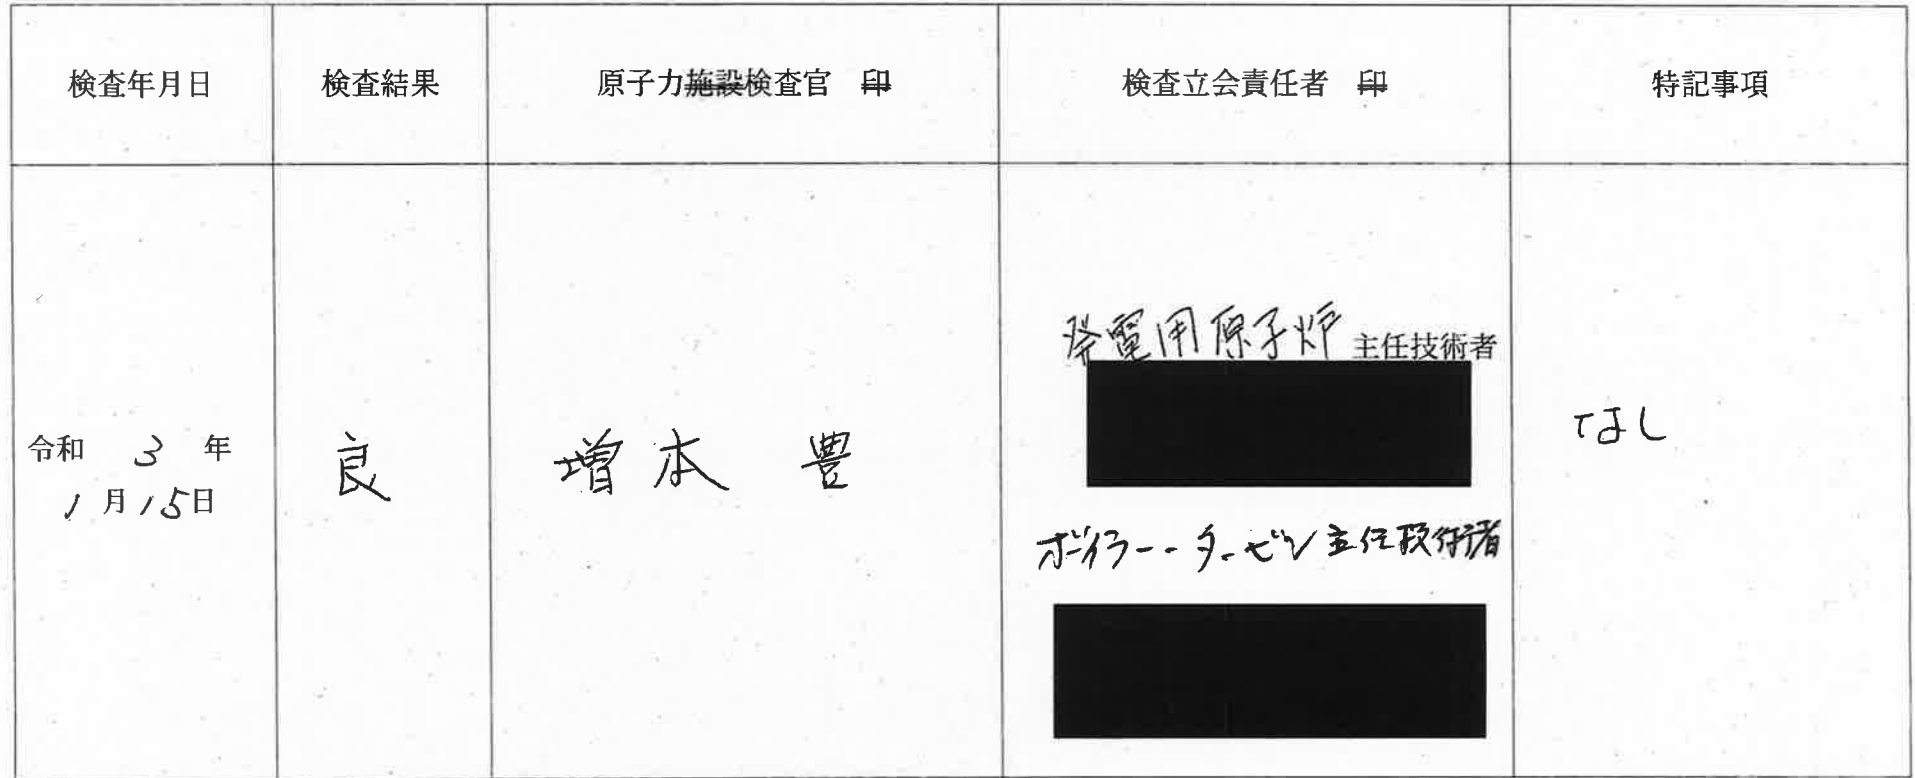 検査年月日
検査結果
原子力施設検査官 印
検査立会責任者 印
特記事項
令和 3 年
1 月 15 日
良
増本 豊
発電用原子炉 主任技術者
ボイラー・タービン主任技術者
なし